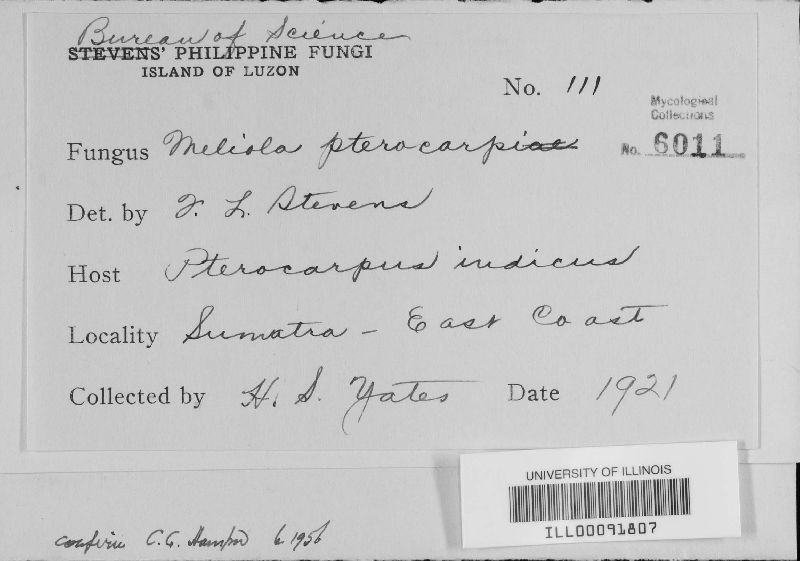 Bureau of Science
STEVENS' PHILIPPINE FUNGI
ISLAND OF LUZON
No. 111
Mycological
Collections
No. 6011
Fungus Meliola pterocarpiae
Det. by F. L. Stevens
Host Pterocarpus indicus
Locality Sumatra - East Coast
Collected by H. S. Yates Date 1921
UNIVERSITY OF ILLINOIS
ILL00091807
confirm C.G. 1956